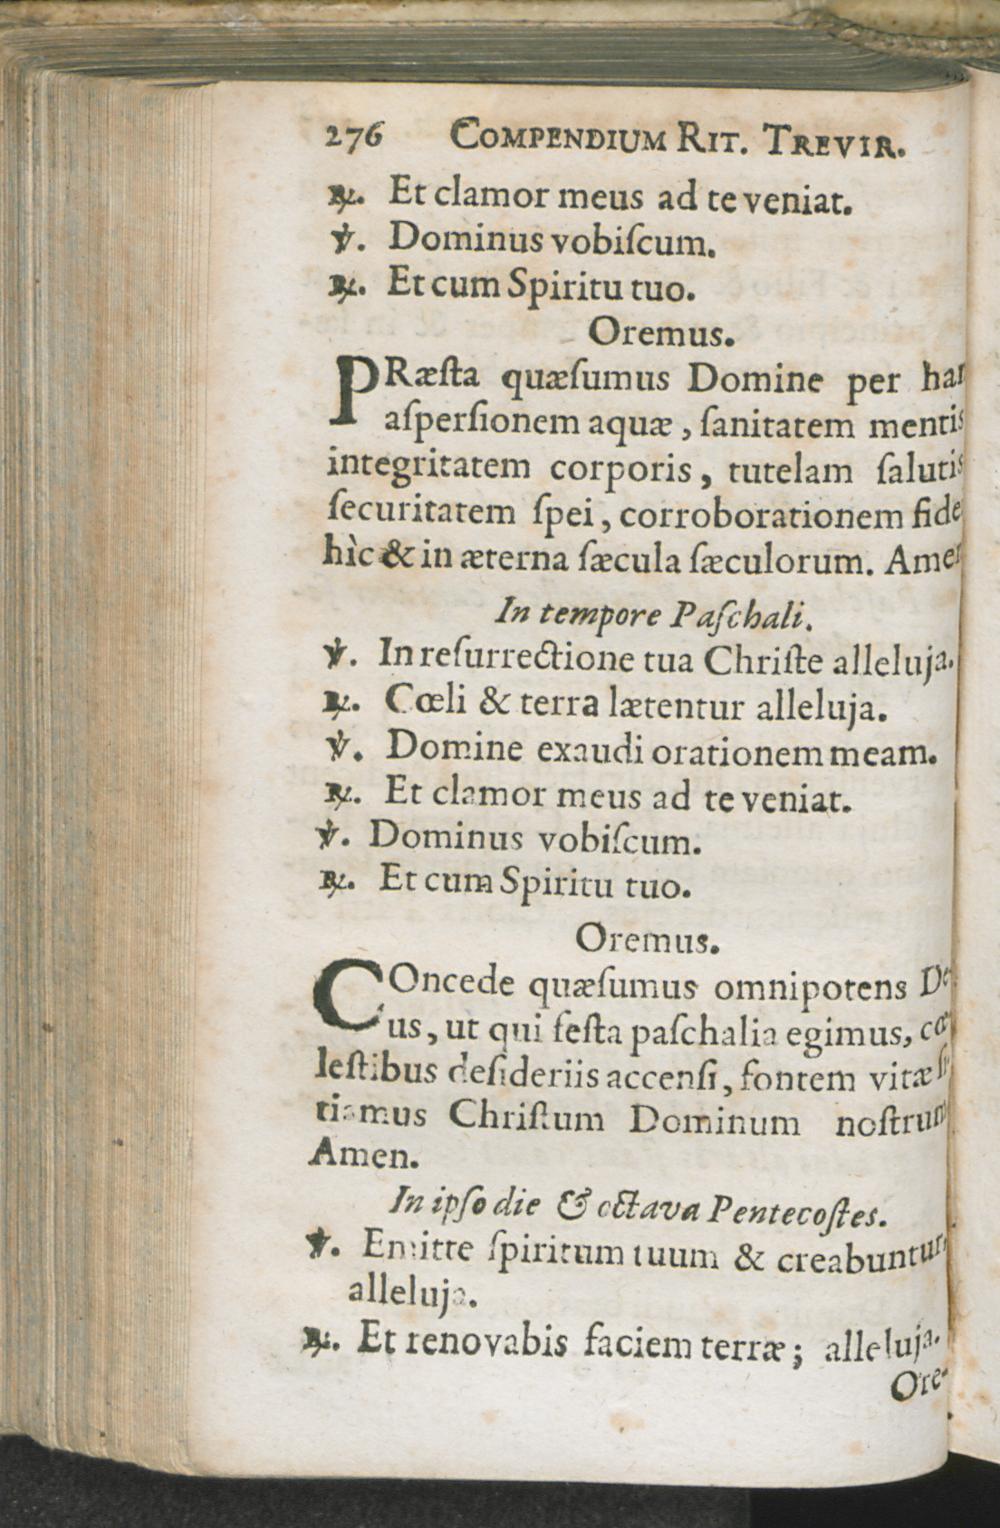 276 COMPENDIUM RIT. TREVIR.
℟. Et clamor meus ad te veniat.
℣. Dominus vobiſcum.
℟. Et cum Spiritu tuo.
Oremus.
PRæſta quæſumus Domine per han
aſperſionem aquæ, ſanitatem mentis
integritatem corporis, tutelam ſalutis
ſecuritatem ſpei, corroborationem fide
hìc & in æterna ſæcula ſæculorum. Amen
In tempore Paſchali.
℣. In reſurrectione tua Chriſte alleluja.
℟. Cœli & terra lætentur alleluja.
℣. Domine exaudi orationem meam.
℟. Et clamor meus ad te veniat.
℣. Dominus vobiſcum.
℟. Et cum Spiritu tuo.
Oremus.
COncede quæſumus omnipotens De
us, ut qui feſta paſchalia egimus, cœ
leſtibus deſideriis accenſi, fontem vitæ ſi
tiamus Chriſtum Dominum noſtrum
Amen.
In ipſo die & octava Pentecoſtes.
℣. Emitte ſpiritum tuum & creabuntur,
alleluja.
℟. Et renovabis faciem terræ; alleluja.
Ore-